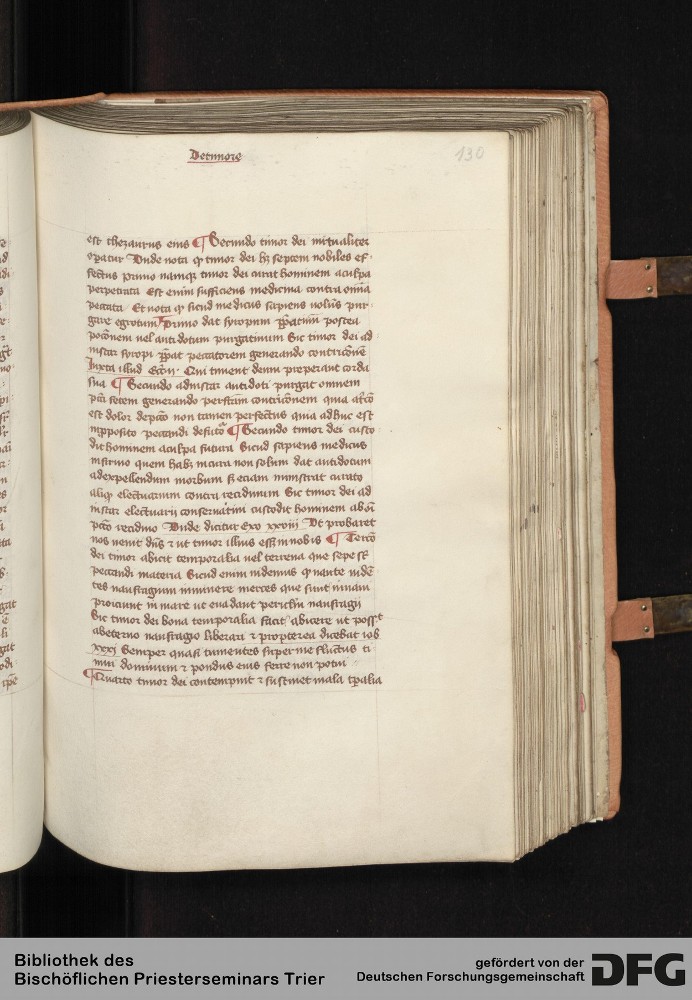 De timore
130
est thezaurus eius ¶ Secundo timor dei mirualiter
opatur Vnde nota qͥ timor dei hꝫ septem nobiles ef
fectus primo namqꝫ timor dei curat hominem a culpa
perpetrata Est enim sufficiens medicina contra omnia
peccata Et nota qͥ sicud medicus sapiens volūs pur
gare egrotum Primo dat syropum p̄patiuū postea
pocōnem uel antidotum purgatiuum Sic timor dei ad
instar syropi p̄pat peccatorem generando contricōnē
Iuxta illud Eccͥi Qui timent deum preperant corda
sua ¶ Secundo ad instar antidoti purgat omnem
pcͥi fetem generando perfctam contricōnem quia
est dolor de pctō non tamen perfectus quia adhuc est
in pposito peccandi ¶ Secundo timor dei custo
dit hominem a culpa futura Sicud sapiens medicus
infirmo quem habꝫ in cura non solum dat antidotum
ad expellendum morbum sꝫ eciam ministrat curato
aliqͥ electuarium contra recidiuum Sic timor dei ad
instar electuarij conseruatiui custodit hominem ab oī
pctō recidiuo Vnde dicitur Exo xxviij Vt probaret
nos uenit dn̄s ⁊ ut timor illius eēt in nobis ¶ Tercō
dei timor abicit temporalia uel terrena que sepe st̄
peccandi materia Sicud enim uidemus qͥ naute uidē
tes naufragium imminere merces que sunt in naui
proiciunt in mare ut euadant periclm̄ naufragij
Sic timor dei bona temporalia facit abicere ut poss̄t
ab eterno naufragio liberari ⁊ propterea dicebat iob
xxxj Semper quasi tumentes super me fluctus ti
mui dominum ⁊ pondus eius ferre non potui
¶ Quarto timor dei contempnit ⁊ sustinet mala tp̄alia
Bibliothek des
Bischöflichen Priesterseminars Trier
gefördert von der
Deutschen Forschungsgemeinschaft
DFG